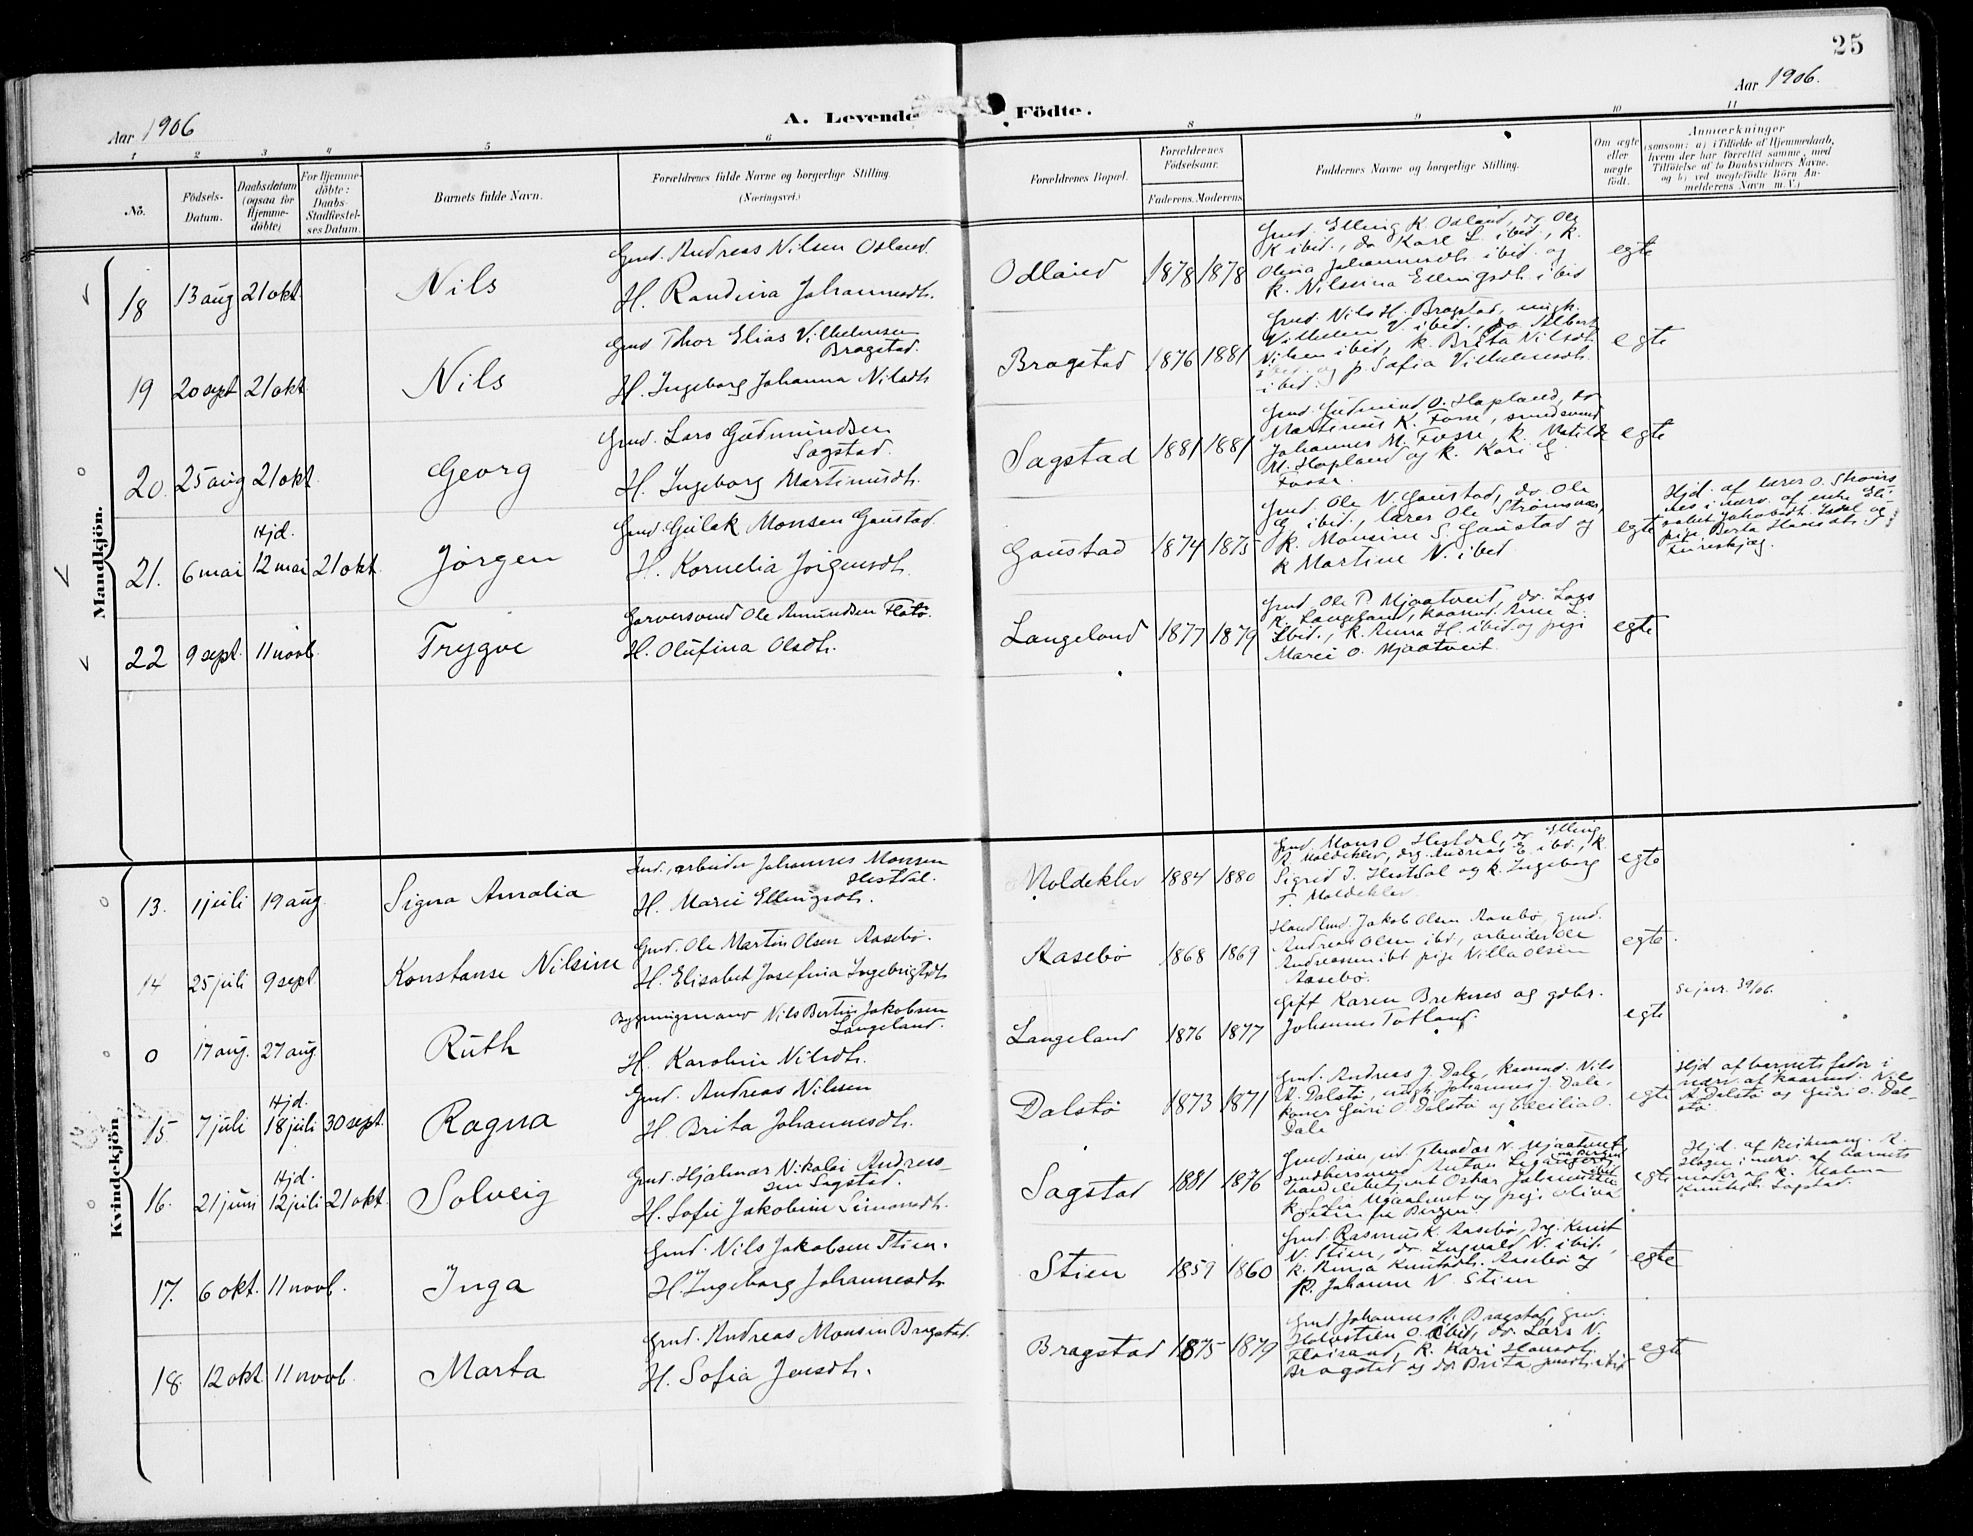 25
Aar 1906
Aar 1906.
A. Levende Födte.
1 2 3 4 5 6 8 9 10 11
No.
Födsels-
Datum.
Daabsdatum
(ogsaa for
Hjemme-
döbte)
For Hjemme-
döbte:
Daabs-
Stadfæstel-
ses Datum.
Barnets fulde Navn.
Forældrenes fulde Navne og borgerlige Stilling.
(Næringsvei.)
Forældrenes Bopæl.
Forældrenes
Födselsaar.
Faderens. Moderens.
Faddernes Navne og borgerlige Stilling.
Om ægte
eller
uægte
födt.
Anmærkninger
(saasom: a) i Tilfælde af Hjemmedaab,
hvem der har forrettet samme, med
Tilföielse af to Daabsvidners Navne.
og b) ved uægtefödte Börn An-
melderens Navn m. V.)
Mandkjön.
18 13 aug 21 okt. Nils
Gmd. Andreas Nilsen Osland.
H. Randina Johannesdtr.
Osland 1878 1878
Gmd. Elling K. Osland, do Ole
K ibid., do Karl L. ibid., k.
Olina Johannesdtr. ibid. og
k. Nilsina Ellingsdtr. ibid
egte
19 20 sept 21 okt Nils
Gmd Thor Elias Vilhelmsen
Bragstad.
H. Ingeborg Johanna Nilsdtr
Bragstad 1876 1881
Gmd. Nils H. Bragstad, ungk.
Vilhelm V. ibid., do Albert
Nilsen ibid, k. Brita Nilsdtr.
ibid. og p. Sofia Vilhelmsdtr.
ibid.
egte
20. 25 aug 21 okt. Georg
Gmd. Lars Gudmundsen
Sagstad.
H. Ingeborg Martinusdtr.
Sagstad 1881 1881
Gmd. Gudmund O. Hopland, do
Martinus K. Fosse, smedsvend
Johannes M. Fosse, k. Matilde
M. Hopland og k. Kari G.
Fosse.
egte
21. 6 mai Hjd. 12 mai 21 okt. Jørgen
Gmd. Gulak Monsen Gaustad.
H. Kornelia Jørgensdtr.
Gaustad 1874 1875
Gmd. Ole N. Gaustad, do. Ole
G. ibid., lærer Ole Strømsnes,
k. Monsine S. Gaustad og
k Martine N. ibid
egte
Hjd. af lærer O. Strøms
nes i nærv. af enke Eli-
sabet Jakobsdtr. Isdal og
pige Berta Hansdtr.
Fureskjæg.
22 9 sept. 11 novb. Trygve
Garversvend Ole Amundsen Flatø.
H. Olufina Olsdtr.
Langeland 1877 1879
Gmd. Ole P. Mjaatveit, do. Lars
K. Langeland, kaarmd. Arne L.
ibid., k. Anna H. ibid og pige
Marie O. Mjaatveit.
egte
Kvindekjön
13. 1 juli 19 aug. Signa Amalia
Ind., arbeider Johannes Monsen
Hestdal.
H. Marie Ellingsdtr.
Moldeklev 1884 1880
Gmd. Mons O. Hestdal, do. Elling
A. Moldeklev, drg. Andreas E. ibid., k.
Sigrid J. Hestdal og k. Ingeborg
T. Moldeklev
egte
14 25 juli 9 sept Konstanse Nilsine
Gmd. Ole Martin Olsen Aasebø.
H. Elisabet Josefina Ingebrigtsdtr.
Aasebø 1868 1869
Handlmd Jakob Olsen Aasebø, gmd.
Andreas Olsen ibd, arbeider Ole
Andreassen ibt pige Villa Olsen
Aasebø.
egte.
0 17 aug. 27 aug Ruth
Bygningsmand Nils Bertin Jakobsen
Langeland.
H. Karoline Nilsdtr.
Langeland 1876 1877
Gift Karen Breknes og gdbr.
Johannes Totland.
egte
Se jnr. 39/06.
15. 7 juli Hjd. 18 juli 30 sept. Ragna
Gmd. Andreas Nilssen
H. Brita Johannesdtr.
Dalstø 1873 1871
Gmd. Andreas J Dale, kaarmd. Nils
A. Dalstø, ungk Johannes J. Dale,
koner Guri O. Dalstø og Cecilia O.
Dale
egte
Hjd af barnets fader i
nærv. af kaarmd. Nils
A. Dalstø og Guri O. Dal-
stø.
16. 21 juni Hjd. 12 juli 21 okt Solveig
Gmd. Hjalmar Nikolai Andreas-
sen Sagstad.
H. Sofie Jakobine Simonsdtr.
Sagstad 1881 1876
egte
17. 6 okt. 11 novb. Inga
Gmd. Nils Jakobsen Stien.
H. Ingeborg Johannesdtr
Stien 1859 1860
Gmd Rasmus K. Aasebø, drg. Knut
N. Stien, do. Ingvald N. ibid.,
k. Anna Knutsdtr. Aasebø og
p. Johanne N. Stien
egte
18 12 okt 11 novb. Marta
Grmd. Andreas Monsen Bragstad.
H. Sofia Jensdtr.
Bragstad 1875 1879
Gmd Johannes A. Bragstad, Gmd.
O. ibid, do. Lars N.
k. Kari Hansdtr.
Bragstad og do. Brita Jensdtr. ibid
egte